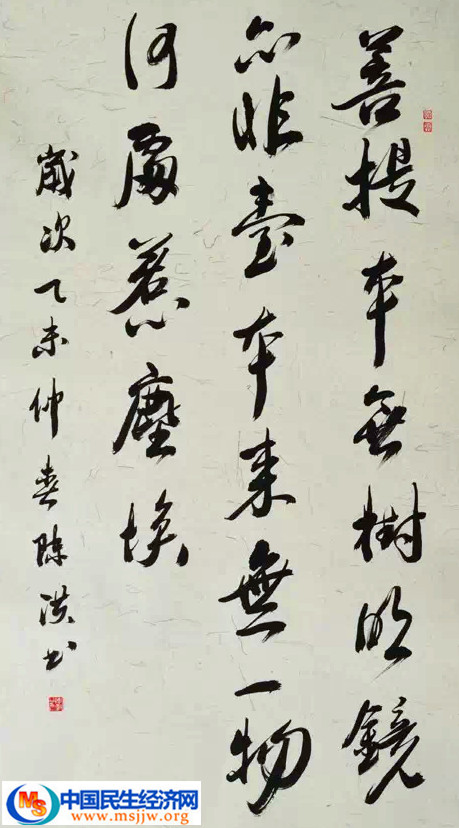 菩提本無樹明鏡
亦非臺本来無一物
何處惹塵埃
歲次乙未仲春陳洪书
MS
中国民生经济网
www.msjjw.org